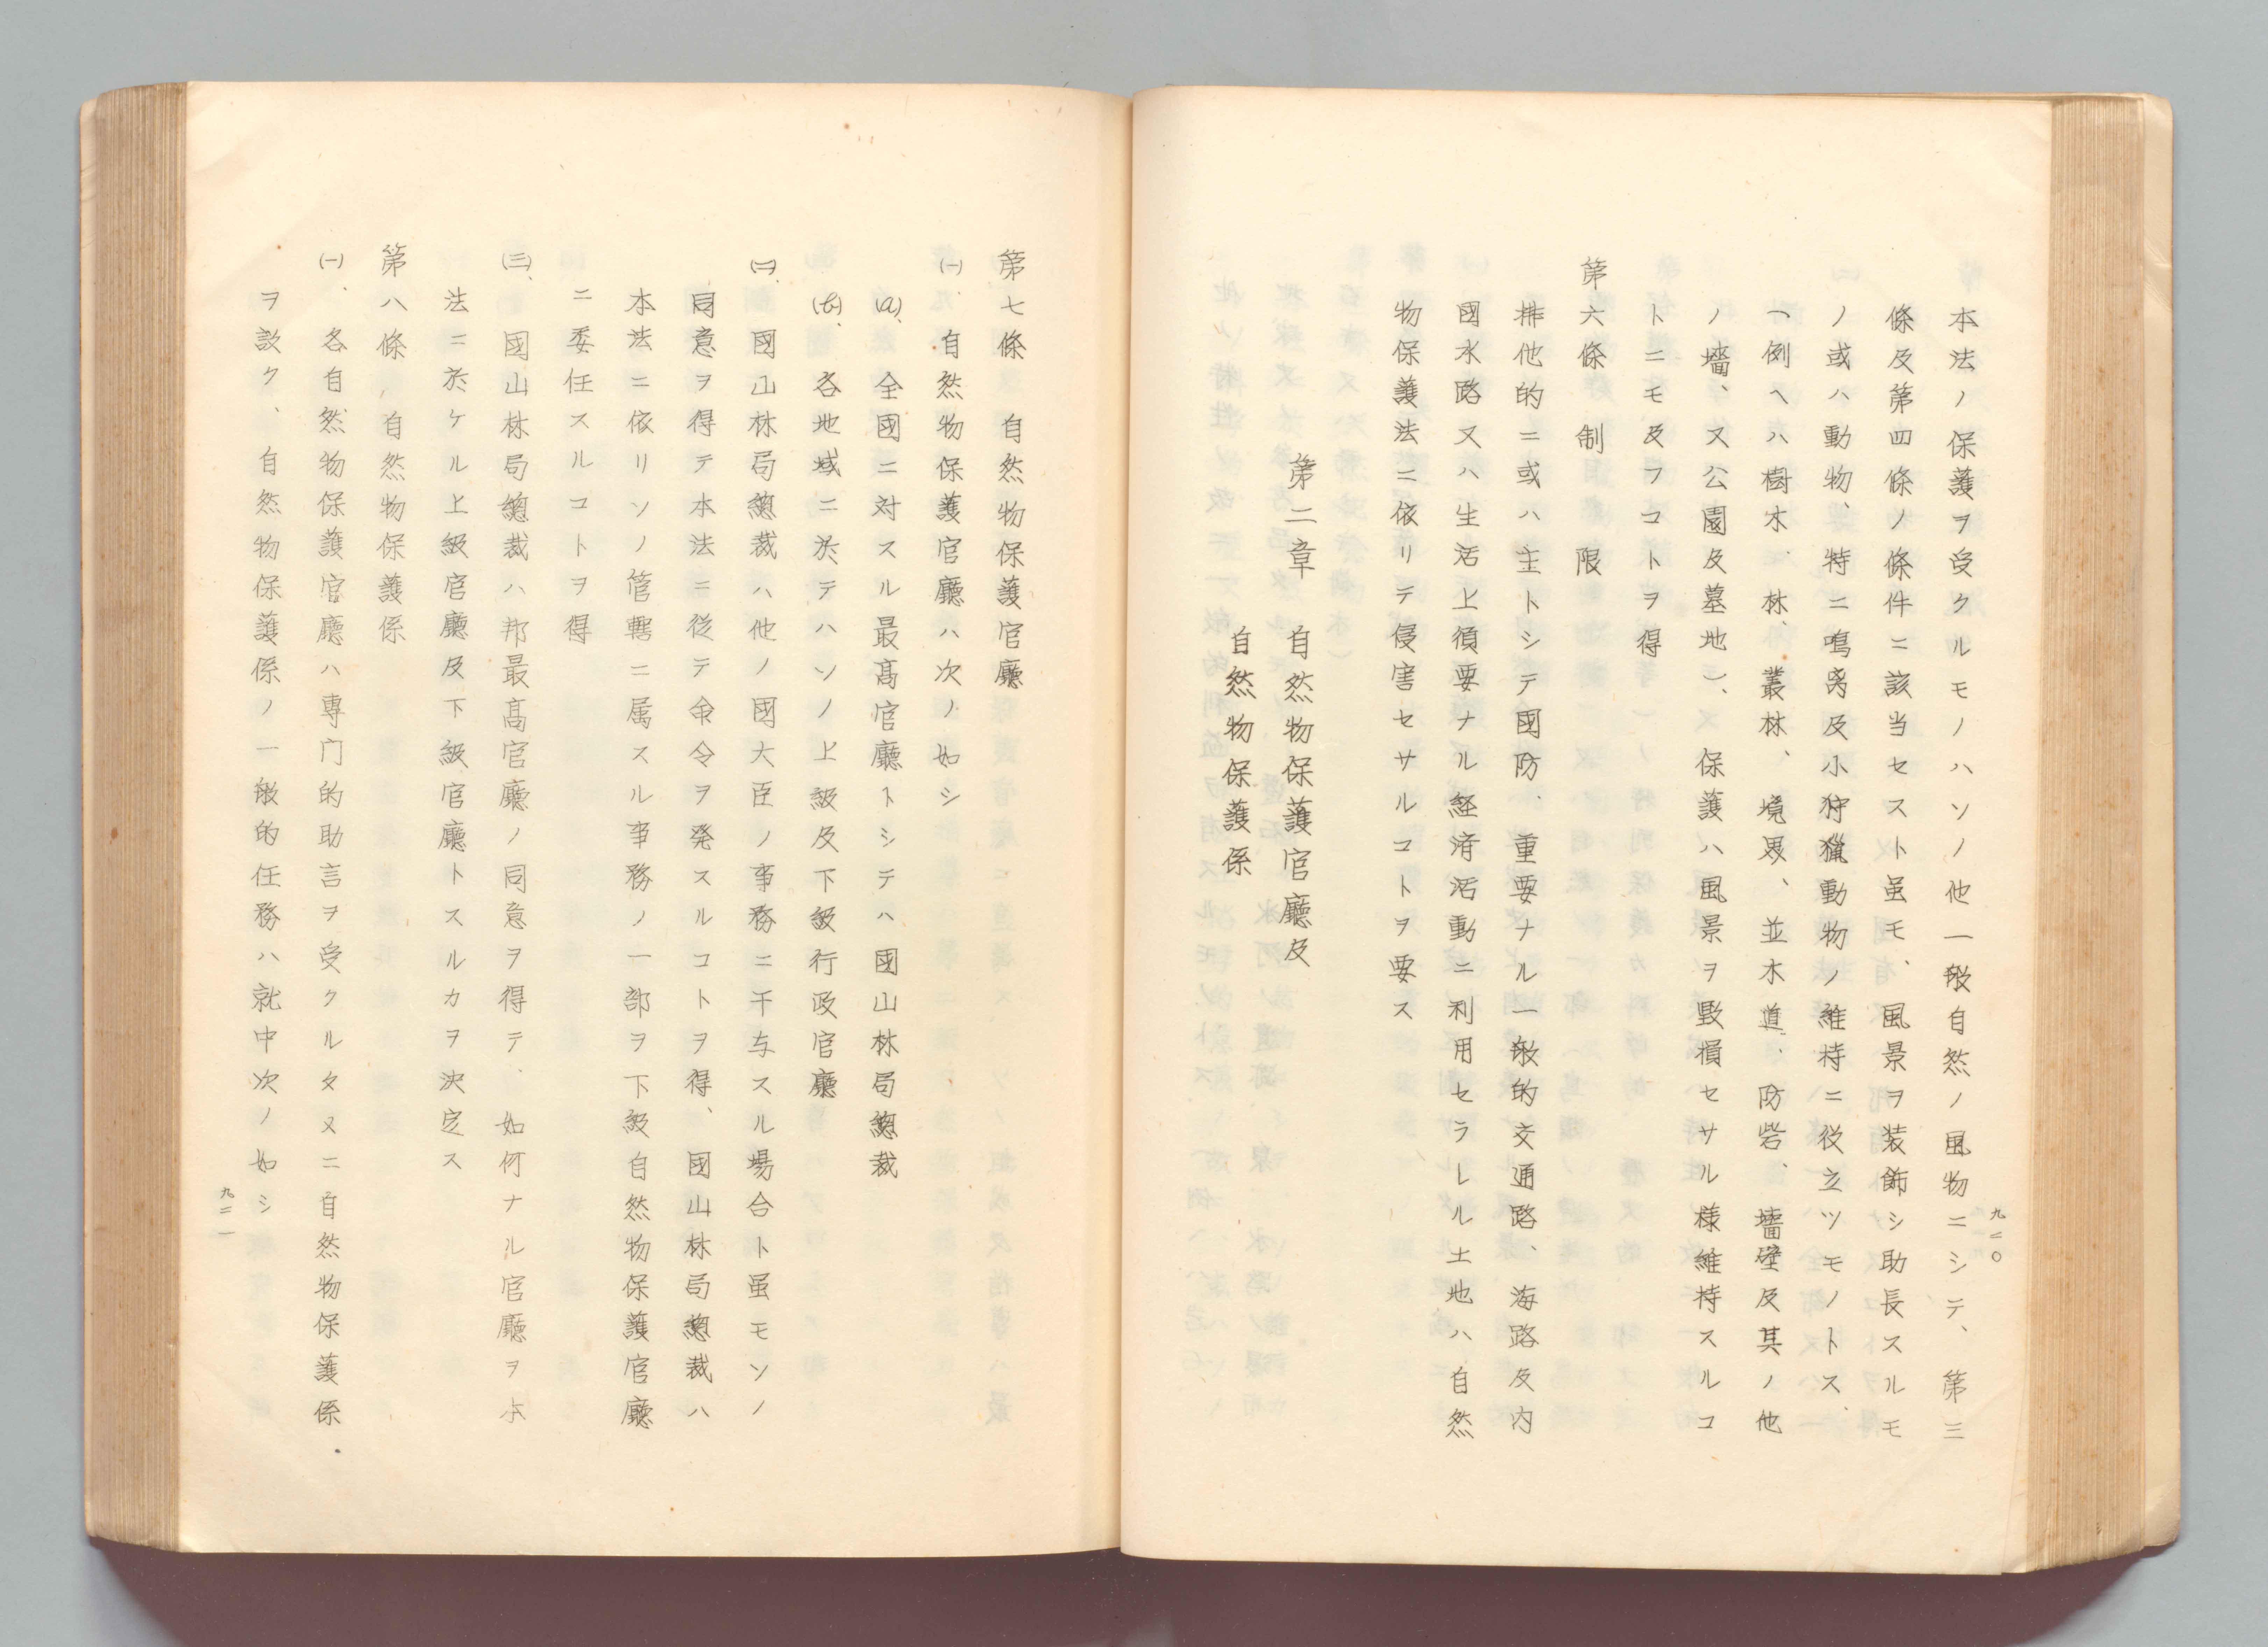 本法ノ保護ヲ受クルモノハソノ他一般自然ノ風物ニシテ、第三
條及第四條ノ條件ニ該当セスト虽モ、風景ヲ装飾シ助長スルモ
ノ或ハ動物、特ニ鳴禽及小狩獵動物ノ維持ニ役立ツモノトス、
(例ヘハ樹木、林、叢林、境界、並木道、防砦、墻壁及其ノ他
ノ墻、又公園及墓地モ)、又保護ハ風景ヲ毀損セサル様維持スルコ
トニモ及フコトヲ得
第六條 制限
排他的ニ或ハ主トシテ國防、重要ナル一般的交通路、海路及内
國水路又ハ生活上須要ナル経済活動ニ利用セラレル土地ハ自然
物保護法ニ依リテ侵害セサルコトヲ要ス
第二章 自然物保護官廳及
自然物保護係
九二〇
第七條 自然物保護官廳
(一)、自然物保護官廳ハ次ノ如シ
(a)、全國ニ対スル最高官廳トシテハ國山林局總裁
(b)、各地域ニ於テハソノ上級及下級行政官廳
(二)、國山林局總裁ハ他ノ國大臣ノ事務ニ干与スル場合ト虽モソノ
同意ヲ得テ本法ニ從テ命令ヲ発スルコトヲ得、國山林局總裁ハ
本法ニ依リソノ管轄ニ属スル事務ノ一部ヲ下級自然物保護官廳
ニ委任スルコトヲ得
(三)、國山林局總裁ハ邦最高官廳ノ同意ヲ得テ、如何ナル官廳ヲ本
法ニ於ケル上級官廳及下級官廳トスルカヲ決定ス
第八條、自然物保護係
(一)、各自然物保護官廳ハ專门的助言ヲ受クルタメニ自然物保護係
ヲ設ク、自然物保護係ノ一般的任務ハ就中次ノ如シ
九二一